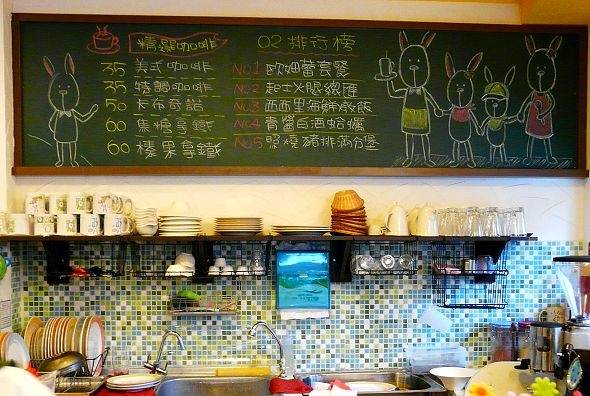 精選咖啡
35 美式咖啡
35 特調咖啡
50 卡布奇諾
60 焦糖拿鐵
60 榛果拿鐵
02排行榜
No.1 歐姆蕾套餐
No.2 起士火腿纖匯
No.3 西西里海鮮燉飯
No.4 青醬白酒蛤蠣
No.5 照燒豬排滿分堡